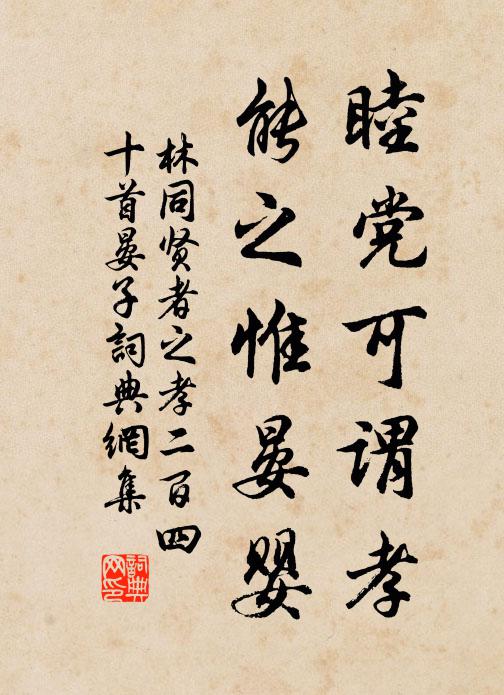 睦党可谓孝
能之惟晏婴
林同贤者之孝二百四
十首晏子詞典網集
詞典
网印